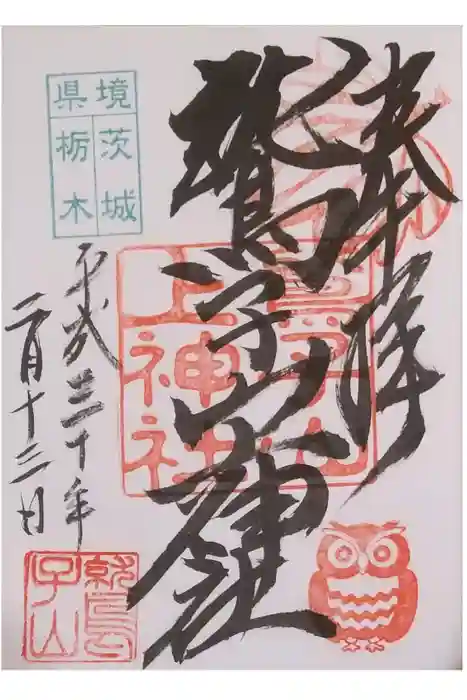 奉拝
鷲子山神社
鷲子山
上神社
県境
茨城
栃木
平成三十年
二月十三日
鷲子山